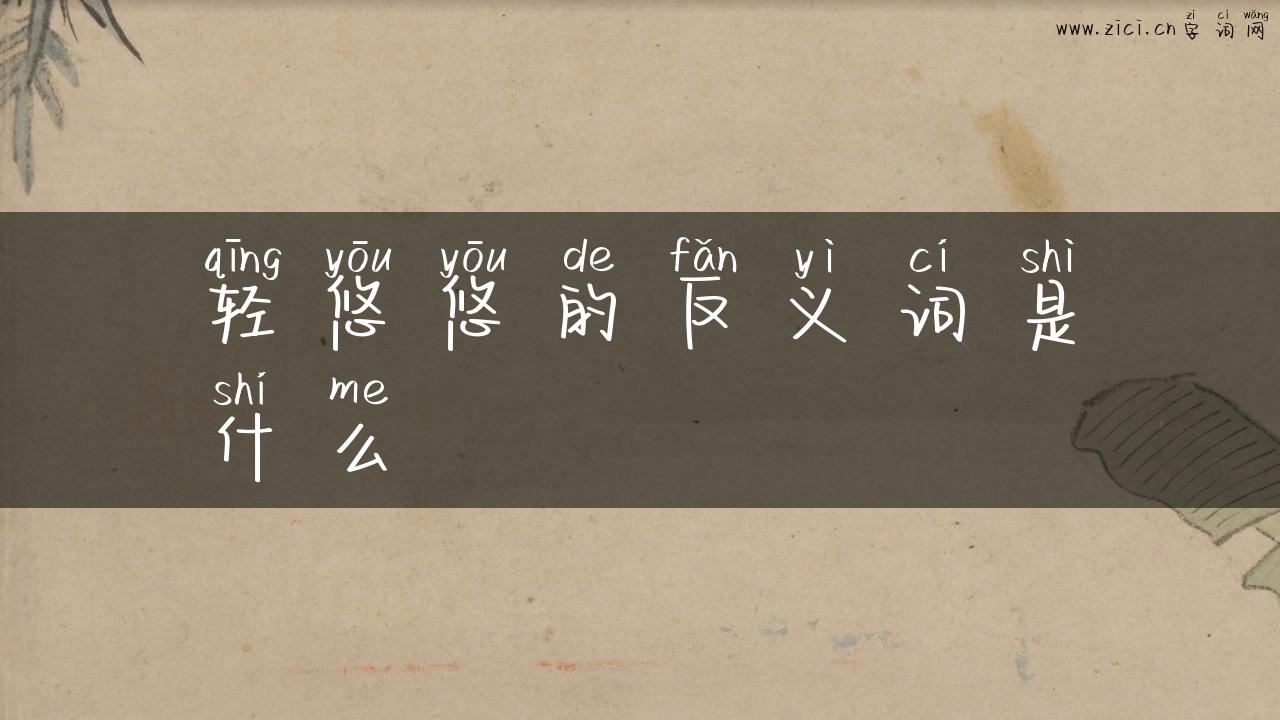 zì cí wǎng
www.zici.cn 字词网
qīng yōu yōu de fǎn yì cí shì
轻悠悠的反义词是
shí me
什么